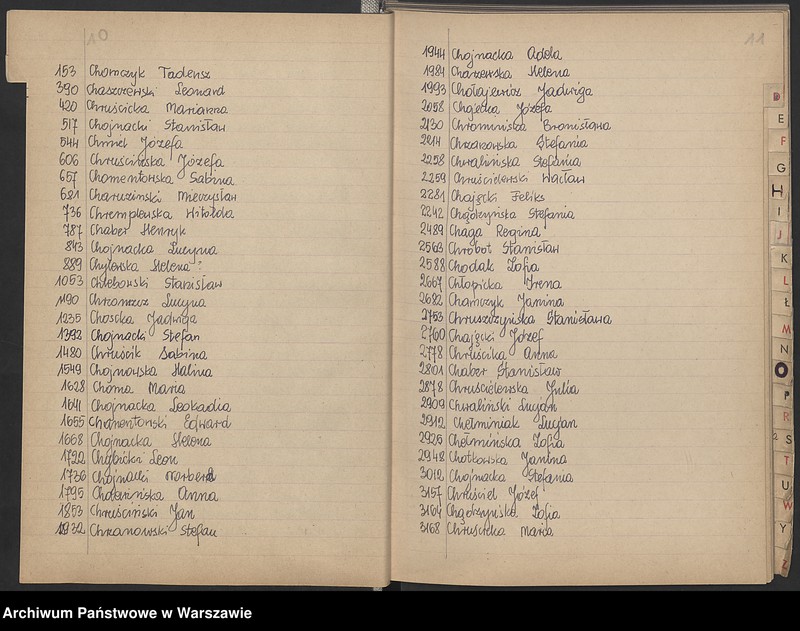 10
153 Chomczyk Tadeusz
390 Chaszczewski Leonard
420 Chruścicka Marianna
517 Chojnacki Stanisław
544 Chmiel Józefa
606 Chruścińska Józefa
657 Chomentowska Sabina
681 Charuziński Mieczysław
736 Chremplewska Witolda
787 Chaber Henryk
843 Chojnacka Lucyna
889 Chylewska Helena ?
1053 Chlebowski Stanisław
1190 Lucyna
1235 Choscka Jadwiga
1392 Chojnacki Stefan
1480 Chruścik Sabina
1549 Chojnowska Halina
1628 Choma Maria
1641 Chojnacka Leokadia
1655 Chomentowski Edward
1668 Chojnacka Helena
1722 Chybicki Leon
1736 Chojnacki Norbert
1795 Anna
1853 Chruściński Jan
1932 Chrzanowski Stefan
11
1944 Chojnacka Adela
1984 Charzewska Helena
1993 Chołajewicz Jadwiga
2058 Chajęcka Józefa
2130 Chromińska Bronisława
2214 Chrzanowska Stefania
2258 Chwalińska Stefania
2259 Chruścielewski Wacław
2281 Chajęcki Feliks
2242 Chądzyńska Stefania
2489 Chaga Regina
2563 Chrobot Stanisław
2588 Chodak Zofia
2667 Chłopicka Irena
2682 Chańczyk Janina
2753 Chruszczyńska Stanisława
2760 Chajęcki Józef
2778 Chruścika Anna
2801 Chaber Stanisław
2878 Chruścielewska Julia
2909 Chwaliński Lucjan
2912 Chełminiak Lucjan
2926 Chełmińska Zofia
2948 Chotkowska Janina
3012 Chojnacka Stefania
3157 Chruściel Józef
3164 Chądzyńska Zofia
3168 Chruścicka Maria
D
E
F
G
H
I
J
K
L
Ł
M
N
O
P
R
S
T
U
W
Y
Z
Archiwum Państwowe w Warszawie